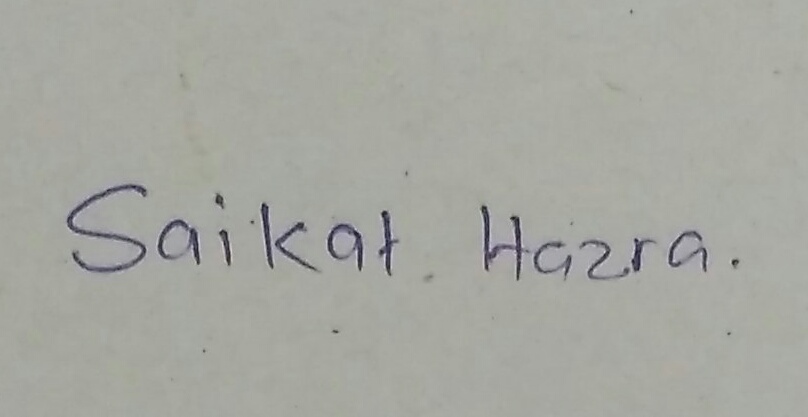 Saikat. Hazra.